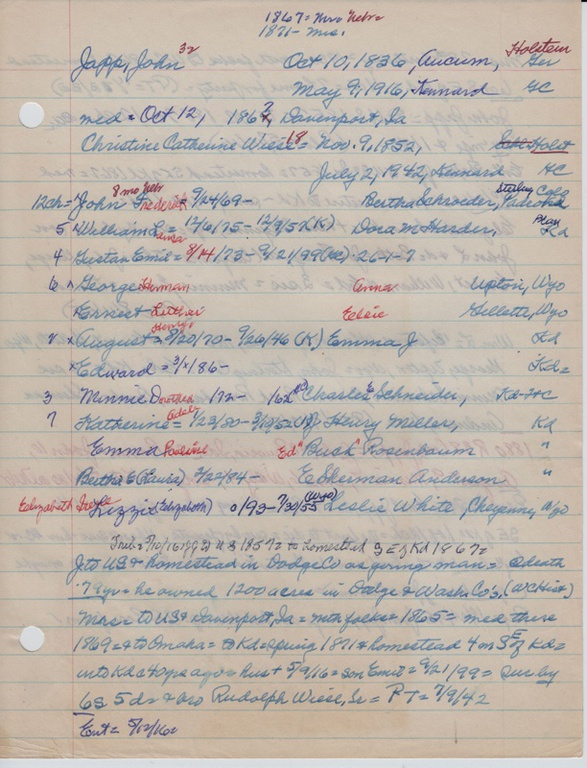 1867 = Mr Nebr
1871 - Mrs.
Japp, John 32 Oct 10, 1836, Aucum, Holstein Ger
May 9, 1916, Kennard GC
med = Oct 12, 186 ? Davenport, Ia
Christine Catherine Wiese 18 = Nov. 9, 1852, Holst
July 2, 1942, Kennard GC
8 mo Nebr Sterling Colo
12 ch = John Frederick = 9/24/69 - Bertha Schroeder,
5 x William L = 12/6/75 - 12/9/52 (K) Dora M Harder, Kd
4 Gustav Emil = 8/14/73 - 9/21/99 26-1-7
6 x George Herman Anna Upton, Wyo
Earnest Luther Elsie Gillette, Wyo
Henry
2 x August = 9/20/70 - 9/26/46 (K) Emma J Kd
x Edward = 3/x/86 - Kd =
3 Minnie Dorothea /72 - Charles E Schneider, Kd - HC
7 Katherine Adele = 1/23/80 - (K) Henry Miller, Kd
Emma Pauline Ed "Buck" Rosenbaum "
Bertha E (Louisa) 2/22/84 - E Sherman Anderson "
Elizabeth Lizzie (Elizabeth) 0/93 - 7/30/55 (Wyo) Leslie White, Cheyenne, Wyo
Trib = 5/10/16 to US 1857 = to homestead SE of Kd 1867 =
J to US & homestead in Dodge Co as young man = @ death
79 yo = he owned 1200 acres in Dodge & Wash Co's, (WC Hist)
Mrs = to US & Davenport, Ia = mth folks = 1865 = med there
1869 = & to Omaha = to Kd = spring 1871 & homestead 4 m SE of Kd =
into Kd @ 40 yrs ago = hus + 5/9/16 = son Emil = 9/21/99 = sur by
6s 5ds & bro Rudolph Wiese, Sr = PT = 7/9/42
Ent = 5/12/16 =